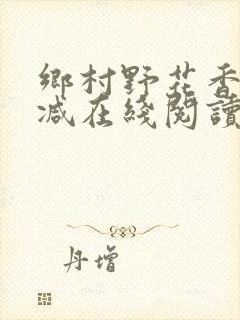 鄉村野花香
减在綫閱讀
丹增